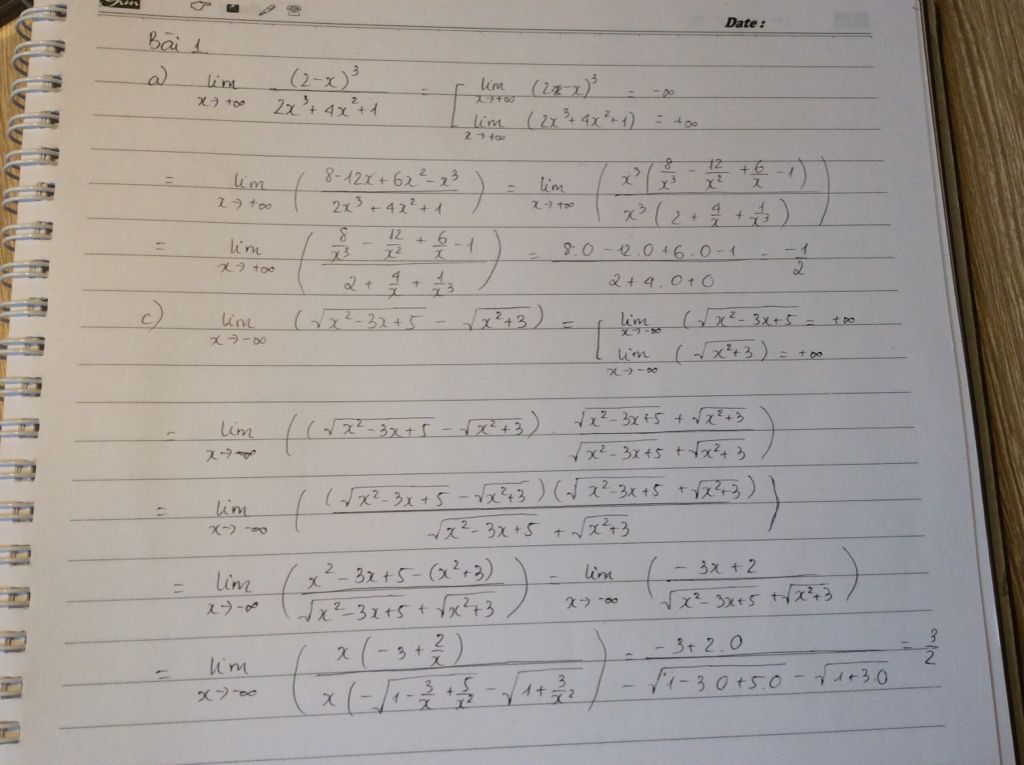 Date :
Bài 1
a) lim x→+∞ (2-x)³ / (2x³+4x²+1) = [ lim x→+∞ (2-x)³ = -∞
lim x→+∞ (2x³+4x²+1) = +∞
= lim x→+∞ ( (8-12x+6x²-x³) / (2x³+4x²+1) ) = lim x→+∞ ( x³(8/x³ - 12/x² + 6/x - 1) / x³(2 + 4/x + 1/x³) )
= lim x→+∞ ( (8/x³ - 12/x² + 6/x - 1) / (2 + 4/x + 1/x³) ) = (8.0 - 12.0 + 6.0 - 1) / (2+4.0+0) = -1/2
c) lim x→-∞ (√(x²-3x+5) - √(x²+3)) = [ lim x→-∞ (√(x²-3x+5) = +∞
lim x→-∞ (√(x²+3)) = +∞
= lim x→-∞ ( (√(x²-3x+5) - √(x²+3)) . (√(x²-3x+5) + √(x²+3)) / (√(x²-3x+5) + √(x²+3)) )
= lim x→-∞ ( (√(x²-3x+5) - √(x²+3)) (√(x²-3x+5) + √(x²+3)) / (√(x²-3x+5) + √(x²+3)) )
= lim x→-∞ ( (x²-3x+5-(x²+3)) / (√(x²-3x+5) + √(x²+3)) ) = lim x→-∞ ( (-3x+2) / (√(x²-3x+5) + √(x²+3)) )
= lim x→-∞ ( x(-3 + 2/x) / x(-√(1 - 3/x + 5/x²) - √(1 + 3/x²) ) = (-3+2.0) / (-√(1-3.0+5.0) - √(1+3.0)) = 3/2